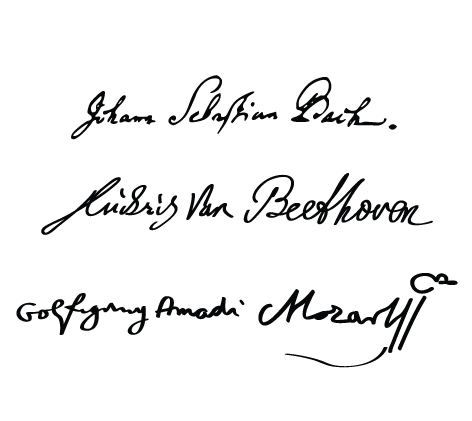 Johann Sebastian Bach.
Ludwig Van Beethoven
Wolfgang Amadi Mozart